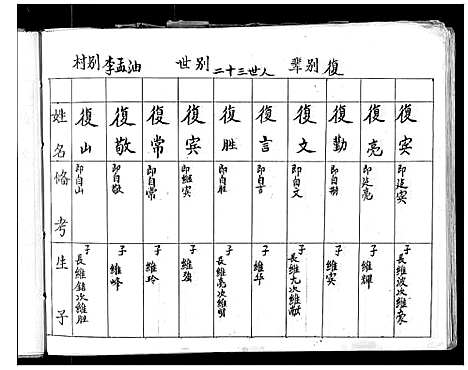 村别 李孟油 世别 二十三世人 輩别 復
姓名 復山 復敬 復常 復宾 復胜 復言 復文 復勤 復亮 復宾
俻考 即自山 即自敬 即自常 即継宾 即自胜 即自言 即自文 即自勤 即延亮 即延宾
生子 子長維 次維胜 子維峰 子維玲 子維強 子長維亮次維明 子維华 子長維九次維献 子維宾 子維耀 子長維波次維泰